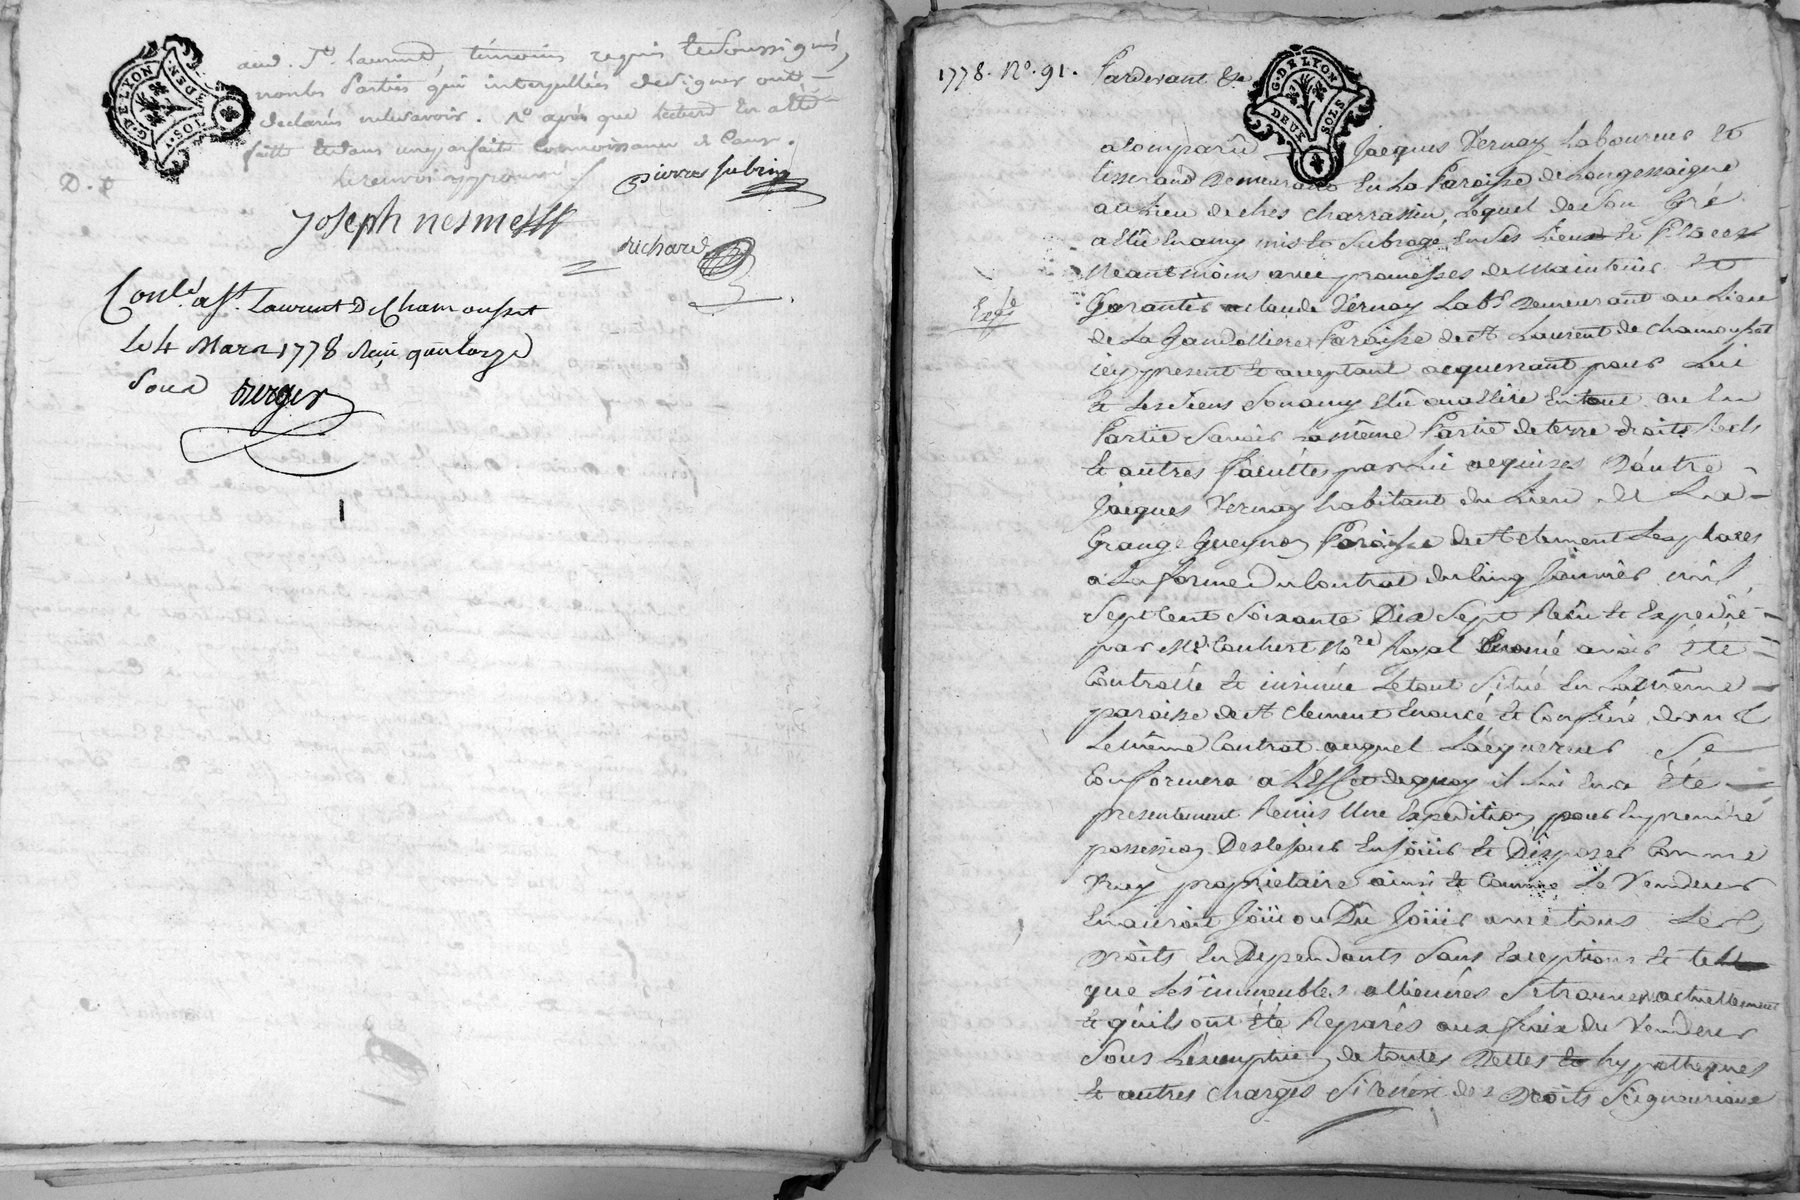 aud. St. Laurent, témoins requis et soussignés,
non les Parties qui interpellées de signer ont
declarés ne le savoir. Et après que lecture en a été
faitte
D. P
le renvoi approuvé
pierre subrin
joseph nesme
richard
Conlé a St. Laurent De Chamousset
le 4 Mars 1778 Reçu quatorze
Sous Berger
G. DE LYON
DEUX SOLS
1778. No. 91.
Pardevant &c
a comparû Jacques Vernay Laboureur et
tisserand Demeurant En La Paroisse de Longessaigne
au Lieu de ches charrassin, Lequel de Son Gré
a mis et Subrogé En Ses Lieu et Places
Neantmoins avec promesses de Maintenir et
Expé
Garantir claude Vernay Labr Demeurant au Lieu
de La Paroisse de St Laurent de chamousset
icy present et acceptant acquerant pour Lui
et Les Siens Son amy Elû ou a Elire En tout ou En
Partie Savoir La même Partie de terre droits Réels
et autres facultes par Lui acquises D'autre
Jacques Vernay habitant du Lieu de La
Grange Paroisse de St clement Les places
a La forme du Contrat du Cinq Janvier mil
Sept Cent Soixante Dix Sept Reçu et Expedié
par Me Nore Royal Enoncé avoir été
Controllé et insinué Le tout Situé En La même
paroisse de St Clement Enoncé et Confiné dans
Le même Contrat auquel L'acquereur Se
Conformera a L'Effet de quoy il Lui En a Eté
presentement Remis Une Expedition pour En prendre
possession Des Le jour En joüir et Disposer Comme
Vray proprietaire ainsi et Comme Le Vendeur
En auroit joüi ou Dû joüir avec tous Les
Droits En Dependants Sans Exceptions et tels
que Les immeubles allienés Se trouvent actuellement
et qu'ils ont Eté Reparés aux fraix du Vendeur
Sous L'exemption de toutes Dettes et hypotheques
et autres charges Si ce n'est des Droits Seigneuriaux